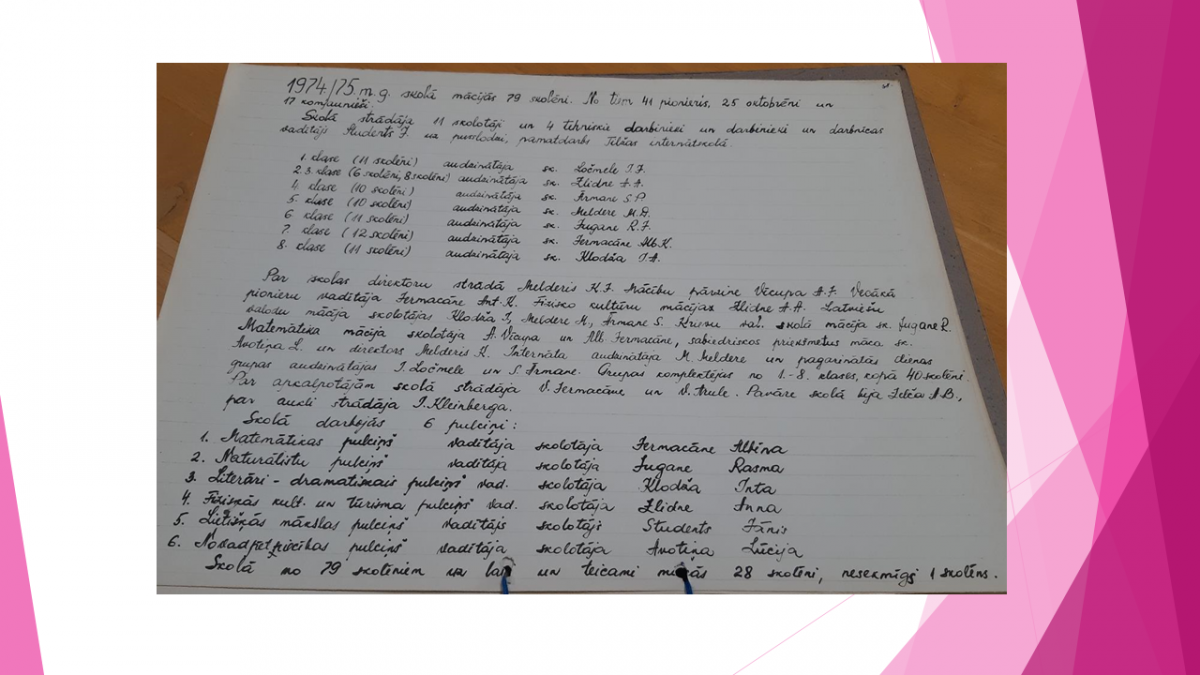 1974/75. m. g. skolā mācījās 79 skolēni. No tiem 41 pionieris, 25 oktobrēni un
17 komjaunieši.
Skolā strādāja 11 skolotāji un 4 tehniskie darbinieki un darbinieki un darbnīcas
vadītājs Students J. uz puslodzi, pamatdarbs Tilžas internātskolā.
1. klase (11 skolēni) audzinātāja sk. Ločmele I.J.
2.3. klase (6 skolēni, 8 skolēni) audzinātāja sk. Zlidne A.A.
4. klase (10 skolēni) audzinātāja sk. Irmane S.P.
5. klase (10 skolēni) audzinātāja sk. Meldere M.A.
6. klase (11 skolēni) audzinātāja sk. Jugane R.J.
7. klase (12 skolēni) audzinātāja sk. Jermacāne Alb.K.
8. klase (11 skolēni) audzinātāja sk. Klodža I.A.
Par skolas direktoru strādā Melderis K.J. Mācību pārzine Vēcupa A.J. Vecākā
pionieru vadītāja Jermacāne Ant.K. Fizisko kultūru mācījas Zlidne A.A. Latviešu
valodu mācīja skolotājas Klodža I., Meldere M., Irmane S. Krievu val. skolā mācīja sk. Jugane R.
Matemātika mācīja skolotāja A. Vēcupa un Alb. Jermacāne, sabiedriskos priekšmetus māca sk.
Avotiņa L. un direktors Melderis K. Internāta audzinātāja M. Meldere un pagarinātās dienas
grupas audzinātājas I. Ločmele un S. Irmane. Grupas komplektējas no 1.-8. klases, kopā 40 skolēni.
Par apkalpotājām skolā strādāja V. Jermacāne un V. Mule. Pavāre skolā bija A.B.,
par aukli strādāja I. Kleinberga.
Skolā darbojās 6 pulciņi:
1. Matemātikas pulciņš vadītāja skolotāja Jermacāne Albīna
2. Naturālistu pulciņš vadītāja skolotāja Jugane Rasma
3. Literāri - dramatiskais pulciņš vad. skolotāja Klodža Inta
4. Fiziskās kult. un tūrisma pulciņš vad. skolotāja Zlidne Anna
5. Lietišķās mākslas pulciņš vadītājs skolotājs Students Jānis
6. Novadpētniecības pulciņš vadītāja skolotāja Avotiņa Lūcija
Skolā no 79 skolēniem uz labi un teicami mācās 28 skolēni, nesekmīgs 1 skolēns.